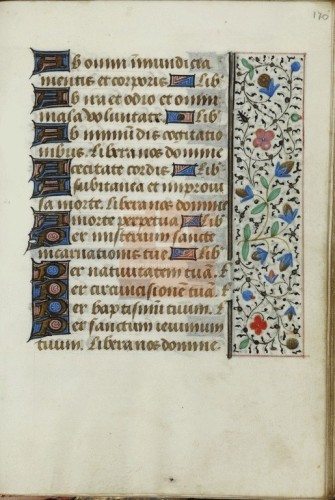 170
Ab omni inmundicia
mentis et corporis. Lib
Ab ira et odio et omni
mala voluntate. Lib
Ab inmundis cogitatio
nibus. Libera nos domine
A cecitate cordis. Lib
A subitanea et improui
sa morte. Libera nos domine
A morte perpetua. Lib
Per misterium sancte
incarnationis tue. Lib
Per natiuitatem tuã. L
Per circuncisionẽ tuã. L
Per baptismũ tuum. L
Per sanctum ieiunium
tuum. Libera nos domine